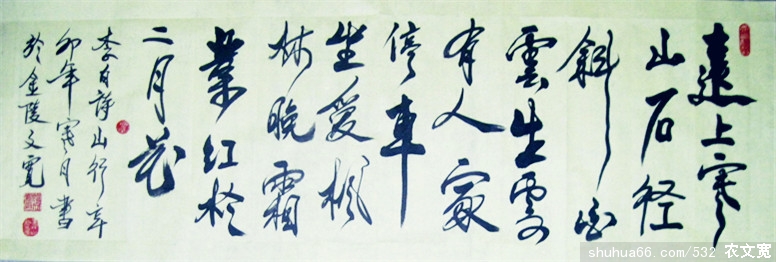 遠上寒
山石径
斜白
雲生處
有人家
停車
坐愛楓
林晚霜
葉红於
二月花
李白詩山行辛
卯年寒月書
於金陵文寬
shuhua66.com/532 农文宽